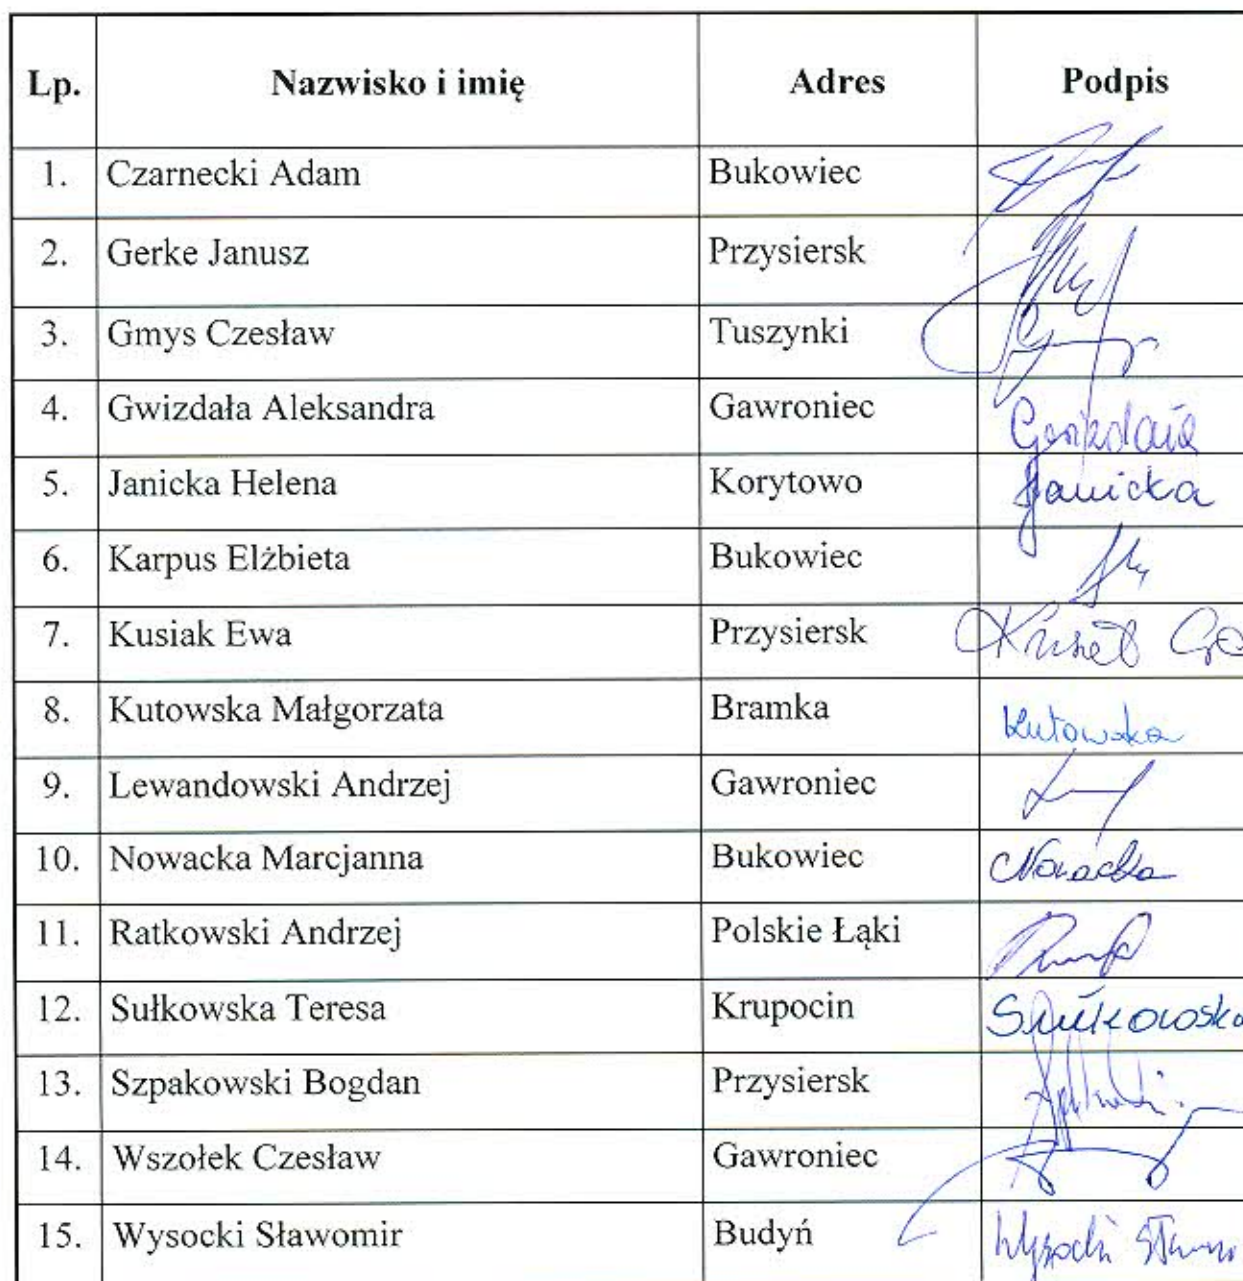 Lp. Nazwisko i imię Adres Podpis
1. Czarnecki Adam Bukowiec
2. Gerke Janusz Przysiersk
3. Gmys Czesław Tuszynki
4. Gwizdała Aleksandra Gawroniec
5. Janicka Helena Korytowo Janicka
6. Karpus Elżbieta Bukowiec
7. Kusiak Ewa Przysiersk
8. Kutowska Małgorzata Bramka Kutowska
9. Lewandowski Andrzej Gawroniec
10. Nowacka Marcjanna Bukowiec Nowacka
11. Ratkowski Andrzej Polskie Łąki
12. Sułkowska Teresa Krupocin Sułkowska
13. Szpakowski Bogdan Przysiersk
14. Wszołek Czesław Gawroniec
15. Wysocki Sławomir Budyń Wysocki